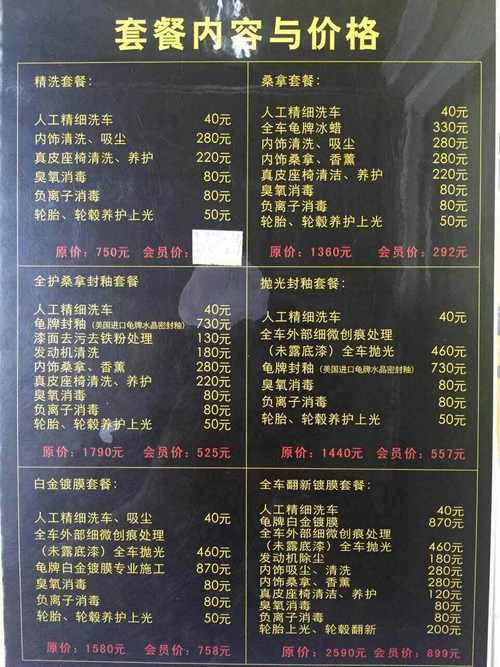 套餐内容与价格
精洗套餐:
人工精细洗车 40元
内饰清洗、吸尘 280元
真皮座椅清洗、养护 220元
臭氧消毒 80元
负离子消毒 80元
轮胎、轮毂养护上光 50元
原价: 750元 会员价:
桑拿套餐:
人工精细洗车 40元
全车龟牌冰蜡 330元
内饰清洗、吸尘 280元
内饰桑拿、香薰 280元
真皮座椅清洁、养护 220元
臭氧消毒 80元
负离子消毒 80元
轮胎、轮毂养护上光 50元
原价: 1360元 会员价: 292元
全护桑拿封釉套餐:
人工精细洗车 40元
龟牌封釉(美国进口龟牌水晶密封釉) 730元
漆面去污去铁粉处理 130元
发动机清洗 180元
内饰桑拿、香薰 280元
真皮座椅清洗、养护 220元
臭氧消毒 80元
负离子消毒 80元
轮胎、轮毂养护上光 50元
原价: 1790元 会员价: 525元
抛光封釉套餐:
人工精细洗车 40元
全车外部细微创痕处理
(未露底漆)全车抛光 460元
龟牌封釉(美国进口龟牌水晶密封釉) 730元
臭氧消毒 80元
负离子消毒 80元
轮胎、轮毂养护上光 50元
原价: 1440元 会员价: 557元
白金镀膜套餐:
人工精细洗车、吸尘 40元
全车外部细微创痕处理
(未露底漆)全车抛光 460元
龟牌白金镀膜专业施工 870元
臭氧消毒 80元
负离子消毒 80元
轮胎、轮毂养护上光 50元
原价: 1580元 会员价: 758元
全车翻新镀膜套餐:
人工精细洗车 40元
龟牌白金镀膜 870元
全车外部细微创痕处理
(未露底漆)全车抛光 460元
发动机除尘 180元
内饰吸尘、清洗 280元
内饰桑拿、香薰 280元
真皮座椅清洁、养护 120元
臭氧消毒 80元
负离子消毒 80元
轮胎上光、轮毂翻新 200元
原价: 2590元 会员价: 899元